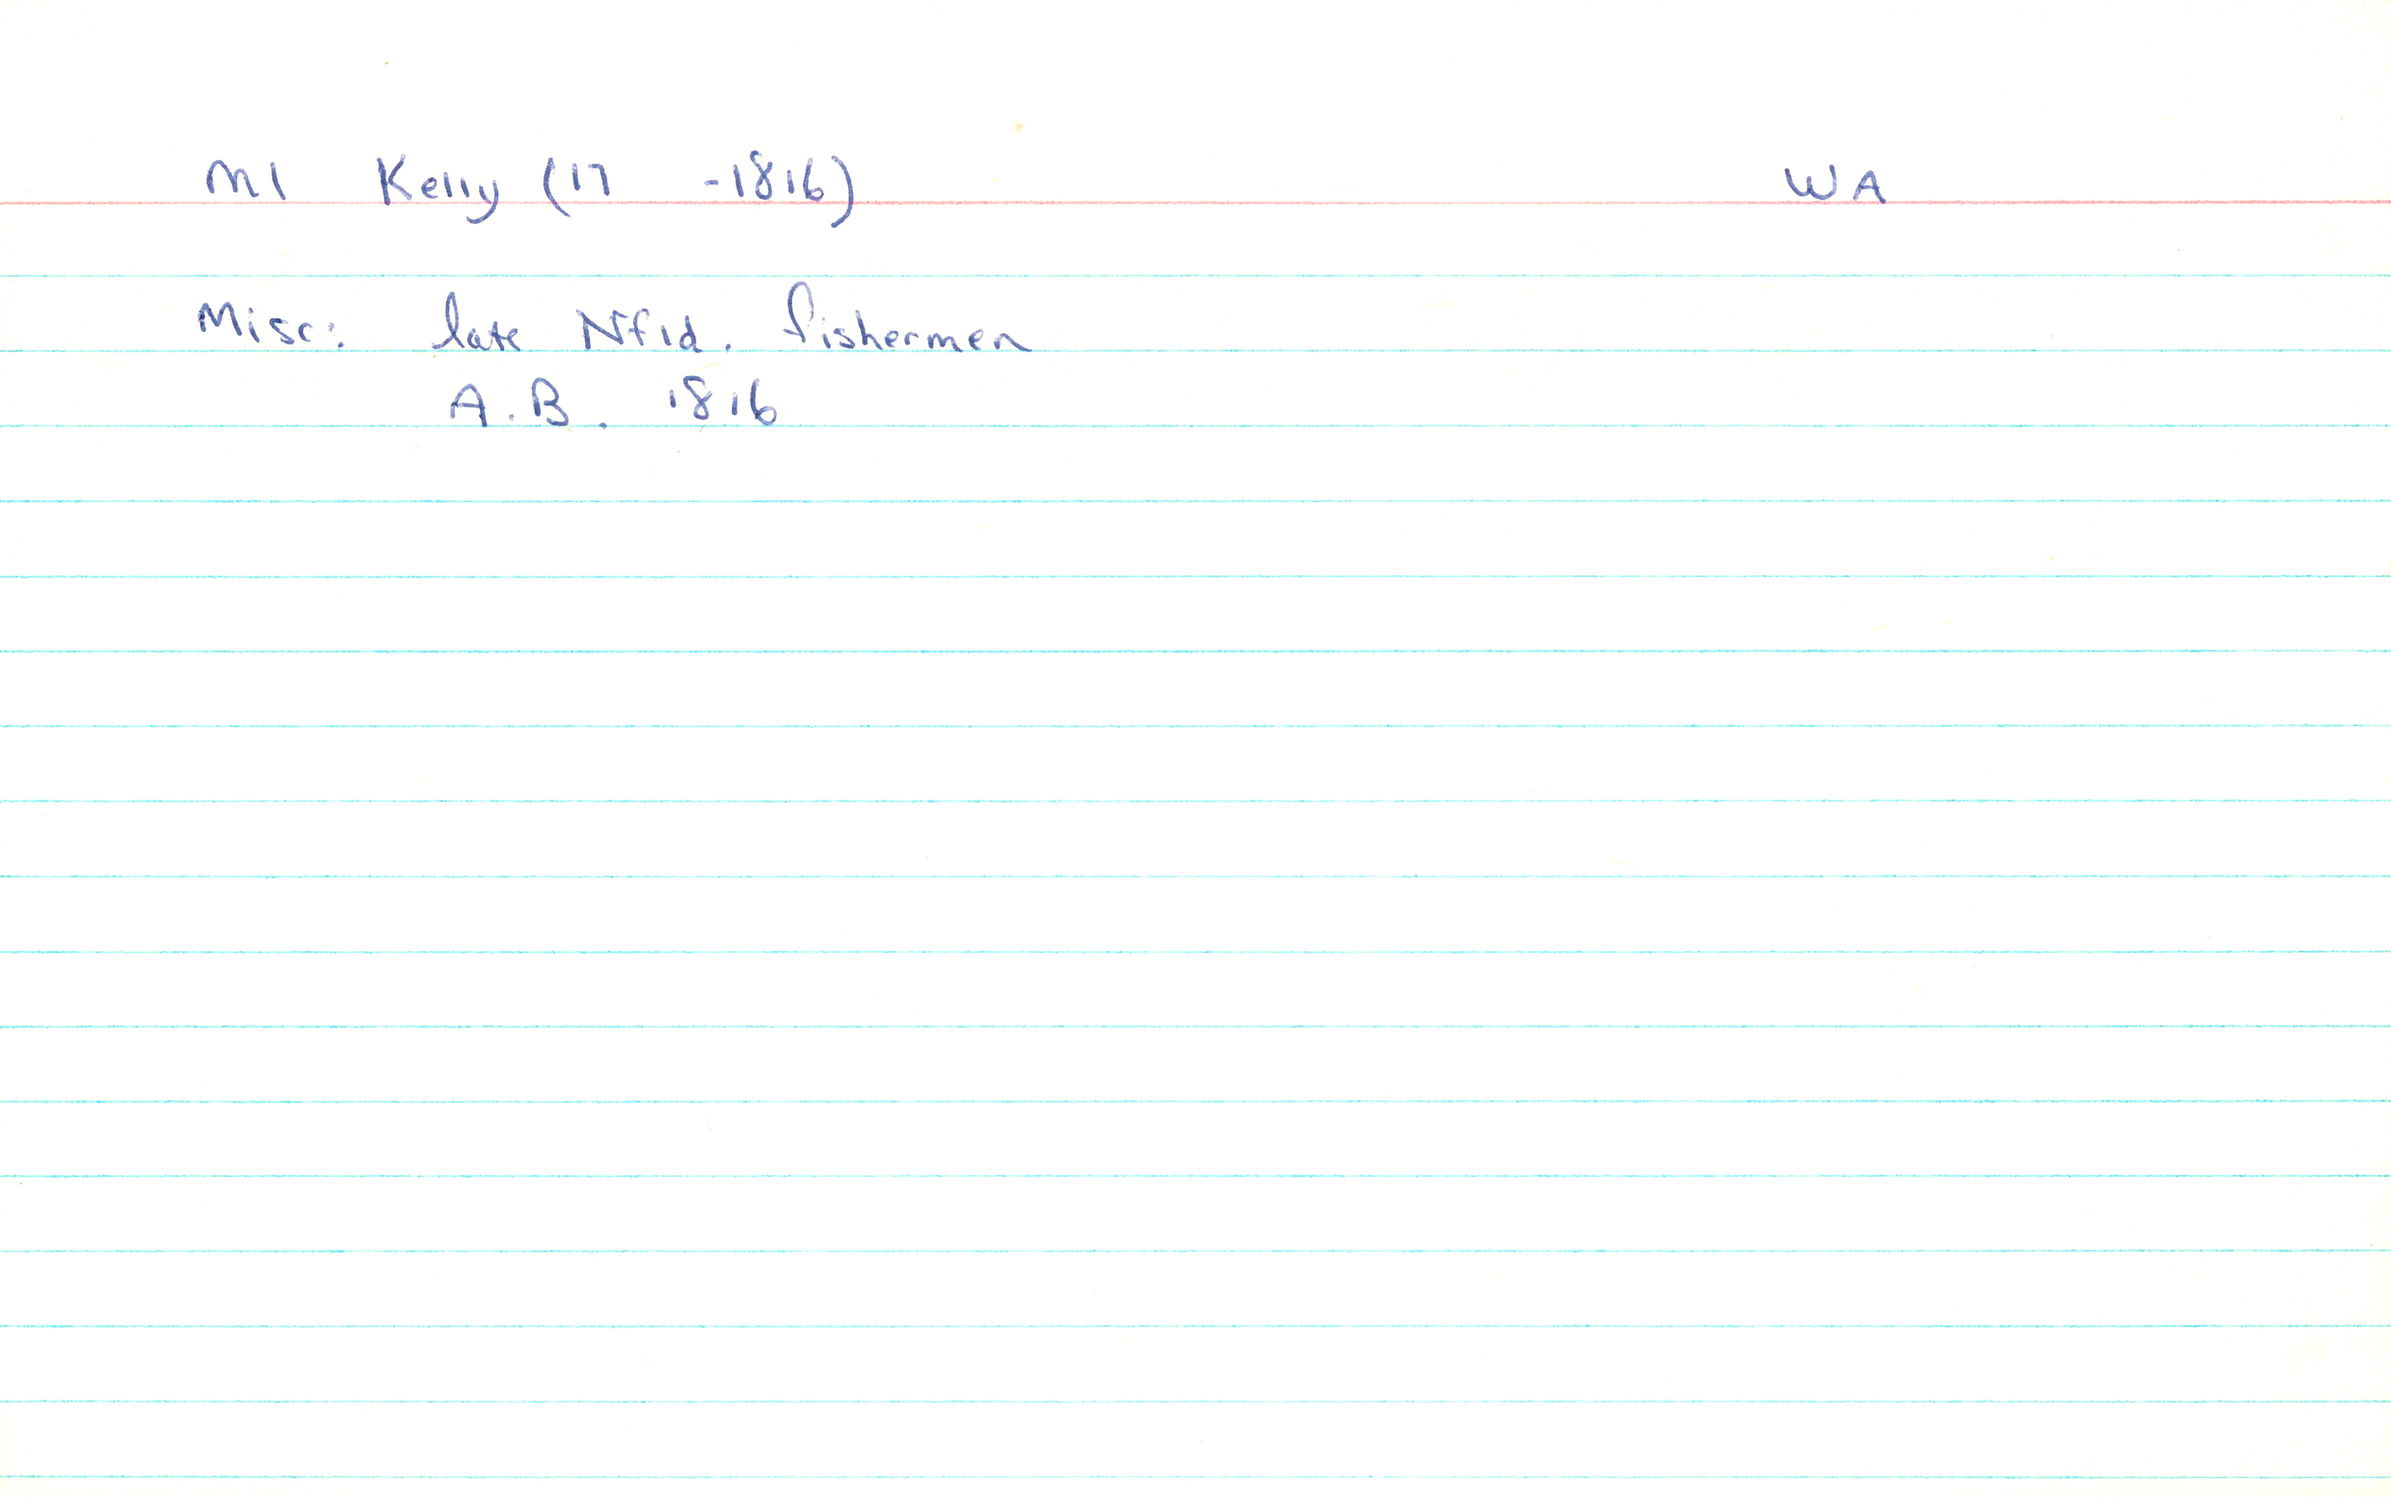 Ml Kelly (17 -1816) WA
Misc: late Nfld. fishermen
A.B. 1816